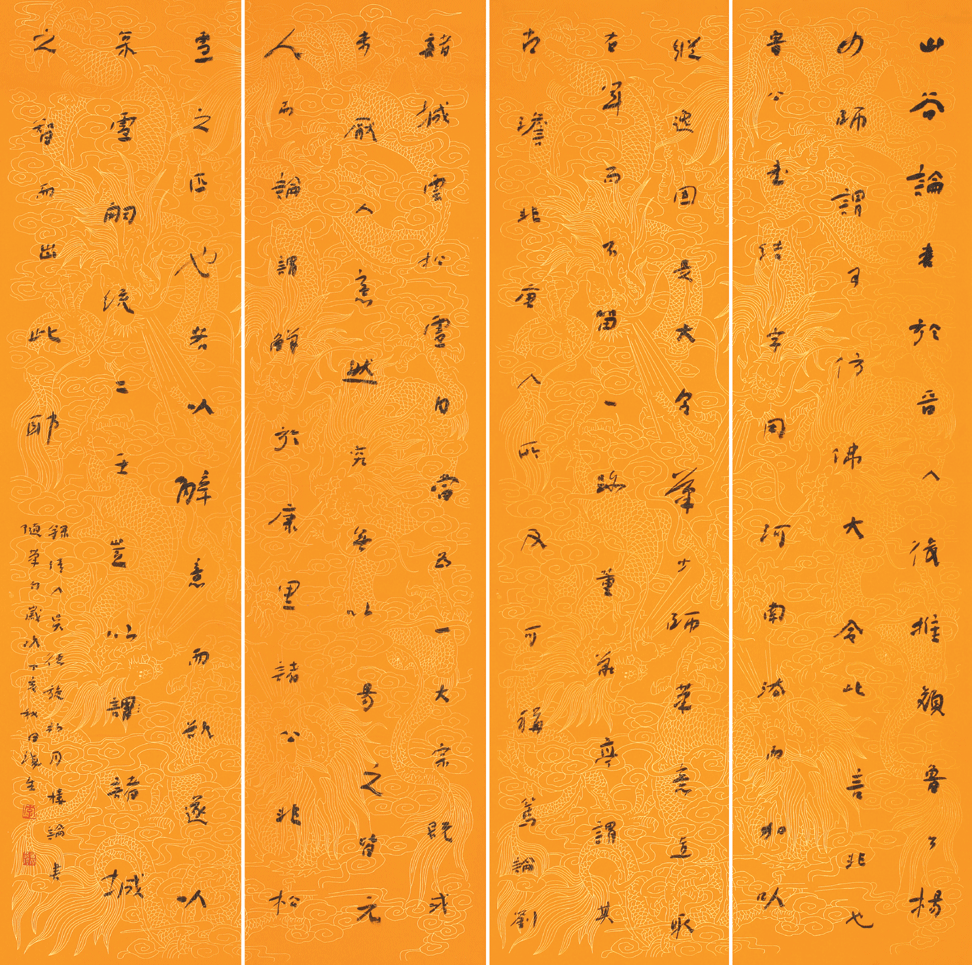 山谷論書於晉人後推顏魯公楊
少師謂可仿佛大令此言非也
魯公書結字同河南法而加以
縱逸固是大令筆少師策意直取
右軍而不留一跡董華亭謂其
古澹非唐人所及可稱篤論劉
諸城雲松雪自當為一大宗既或
未厭人意然究無以易之皆元
人而論謂鮮於康里諸公非松
雪之匹也若以解意而欲遂以
雪嗣統二王豈以謂諸城
之智而出此耶
錄清人吳德旋初月樓論書
隨筆句歲次丁亥秋日